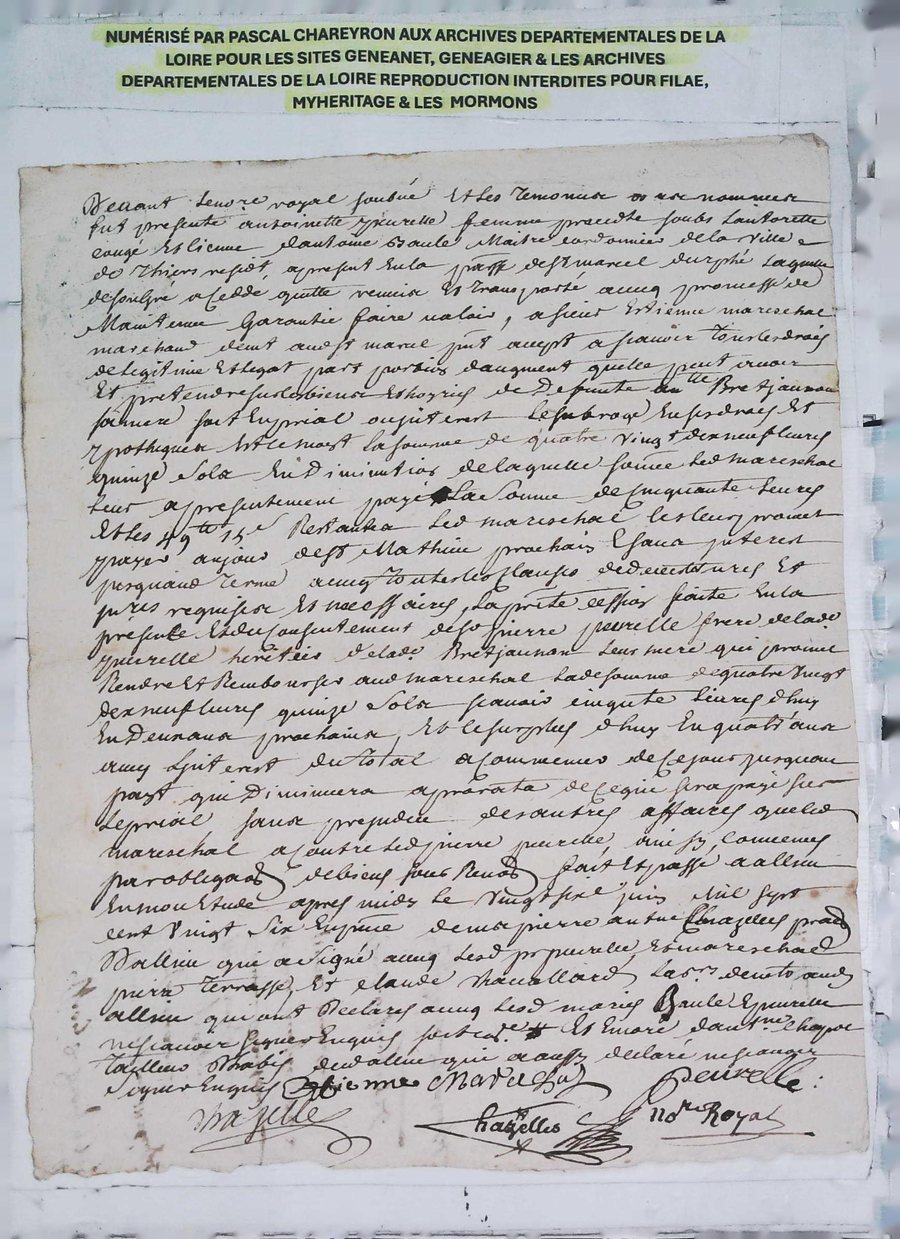 NUMÉRISÉ PAR PASCAL CHAREYRON AUX ARCHIVES DEPARTEMENTALES DE LA
LOIRE POUR LES SITES GENEANET, GENEAGIER & LES ARCHIVES
DEPARTEMENTALES DE LA LOIRE REPRODUCTION INTERDITES POUR FILAE,
MYHERITAGE & LES MORMONS
royal soubné Et les Temoins nommes
fut presente antoinette peurelle femme procedte soubs Lautorette
congé Et licence dantoine Baule Maitre cordonnier de la Ville
de Thiers residt apresent En la parr de st marcel durphé Laquelle
de son gré a cedde quitte remis Et transporté avecq promesse de
Maintenir Garantie faire valoir, a sieur Estienne mareschal
marchand demt audst marcel pnt acept a scavoir Tous les droits
de legitime Et legat part portion daugment quelle peut avoir
Et pretendre sur les biens Et hoyries de Defunte Bretjaunan
sa mere soit En prial ou interest Le subroge En ses droits Et
ypotheques la somme de quatre vingt dixneuf livres
quinze Sols En Diminution de laquelle somme Led mareschal
leur a presentement payé La Somme de cinquante Livres
Et Les 49 15 Restantes Led mareschal les leur promet
payer au jour de st Mathieu prochain sans interest
jusquaud Terme avecq toutes les Clauses
requises Et necessaires, faite En la
presence Et du consentement de sr pierre peurelle frere de lade
peurelle heritier de lade Bretjaunan leur mere qui promet
Rendre Et Rembourser aud mareschal Lade somme de quatre vingt
dixneuf livres quinze Sols scavoir cinqte Livres dhuy
En Deux ans prochains, Et le surplus dhuy En quatre ans
avecq Linterest du total a commencer de ce jour jusquau
payt qui Diminuera a prorata de ce qui sera payé sur
Le prial sans prejudice des autres affaires que led
mareschal a contre Led pierre peurelle, ainsy convenus
par obligaon de biens sous Renon fait Et passé a allieu
En mon Etude apres midy le Vingt juin Mil sept
cent Vingt Six En pnce de me pierre antne Chazelles
Dallieu qui a Signé avecq Lesd pr peurelle, Et mareschal
pierre Terrasse, Et claude
allieu qui ont Declarés avecq Lesd mariés Baule Et peurelle
ne scavoir signer Enquis Et Encore dantne
Tailleur habit dud allieu qui a aussy declaré ne scavoir
Signer Enquis Estienne Mareschal peurelle
chazelle
Chazelles nore Royal